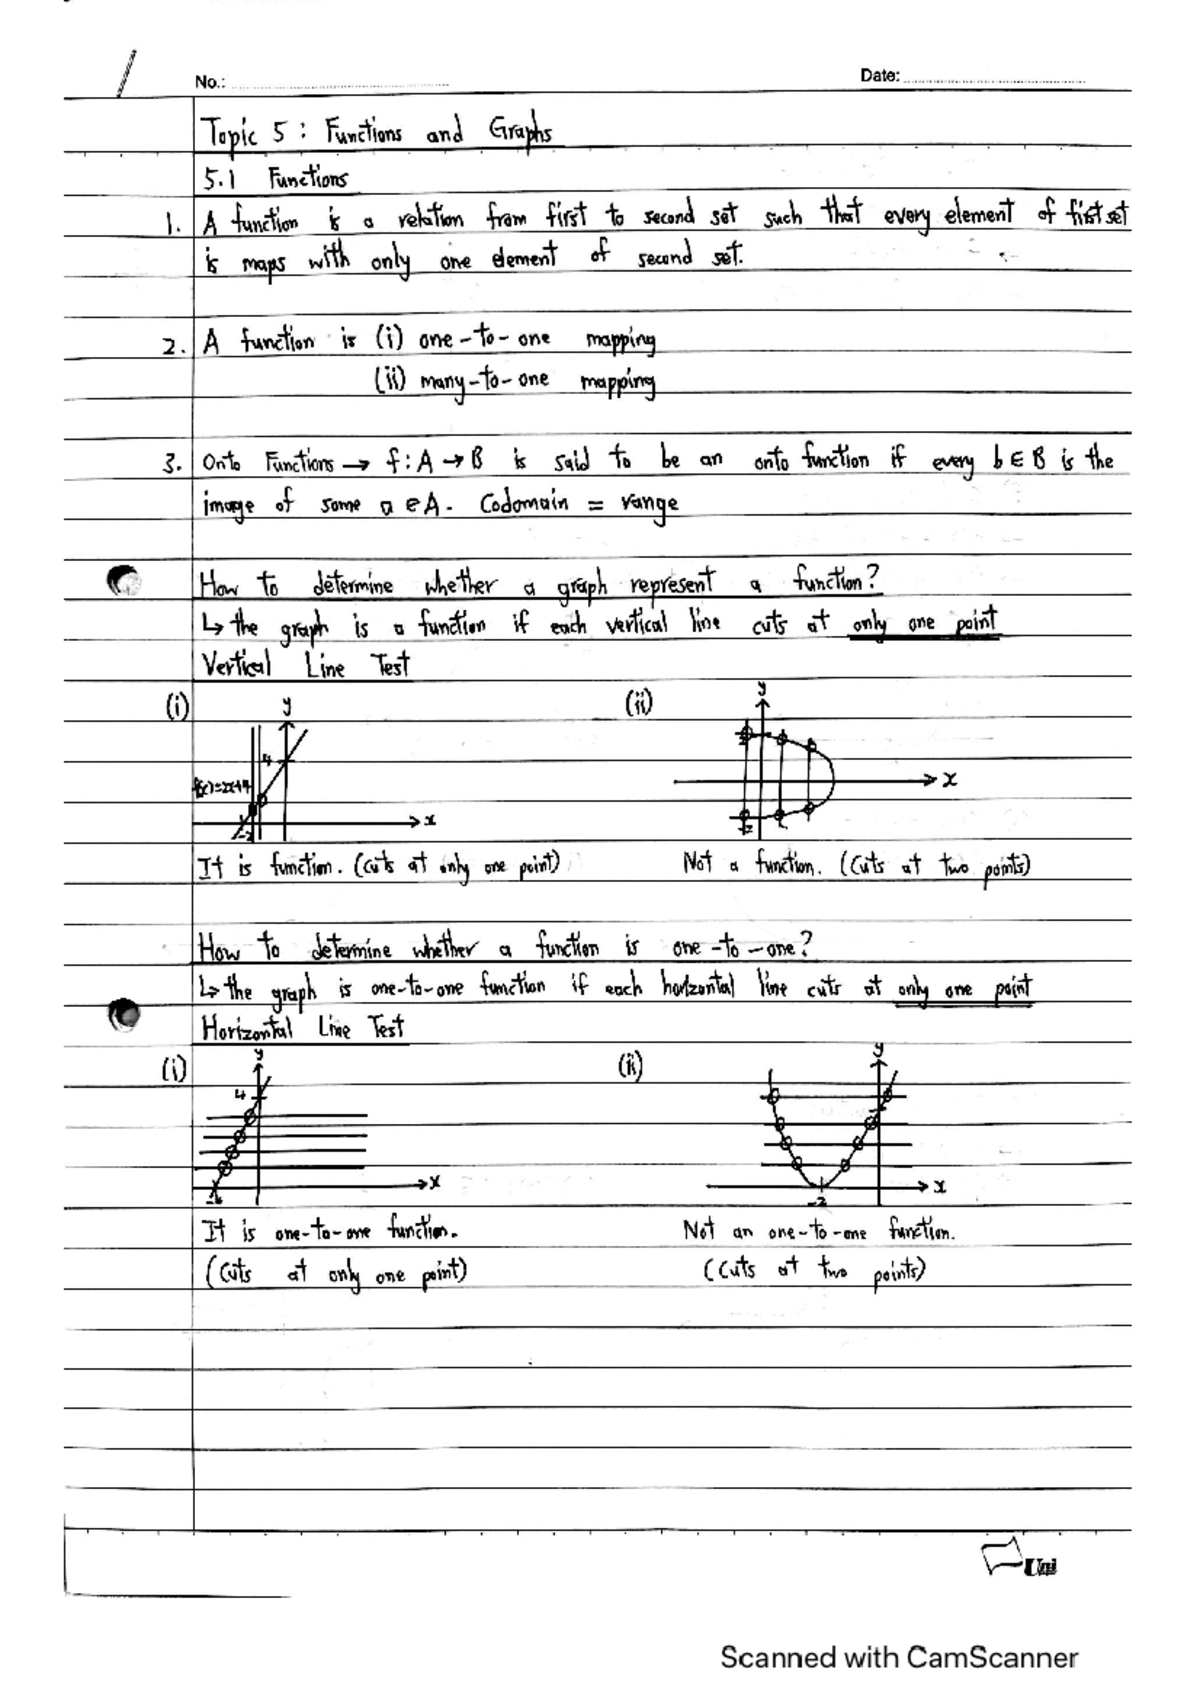 No.:
Date:
Topic 5 : Functions and Graphs
5.1 Functions
1. A function is a relation from first to second set such that every element of first set
is maps with only one element of second set.
2. A function is (i) one-to-one mapping
(ii) many-to-one mapping
3. Onto Functions → f : A → B is said to be an onto function if every b ∈ B is the
image of some a ∈ A. Codomain = range
How to determine whether a graph represent a function?
↳ the graph is a function if each vertical line cuts at only one point
Vertical Line Test
(i) y
(ii) y
4
2
f(x)=2x+4
x
x
-2
-2
It is function. (cuts at only one point)
Not a function. (Cuts at two points)
How to determine whether a function is one-to-one?
↳ the graph is one-to-one function if each horizontal line cuts at only one point
Horizontal Line Test
(i) y
(ii) y
4
x
x
-2
It is one-to-one function.
Not an one-to-one function.
(Cuts at only one point)
(Cuts at two points)
Uni
Scanned with CamScanner